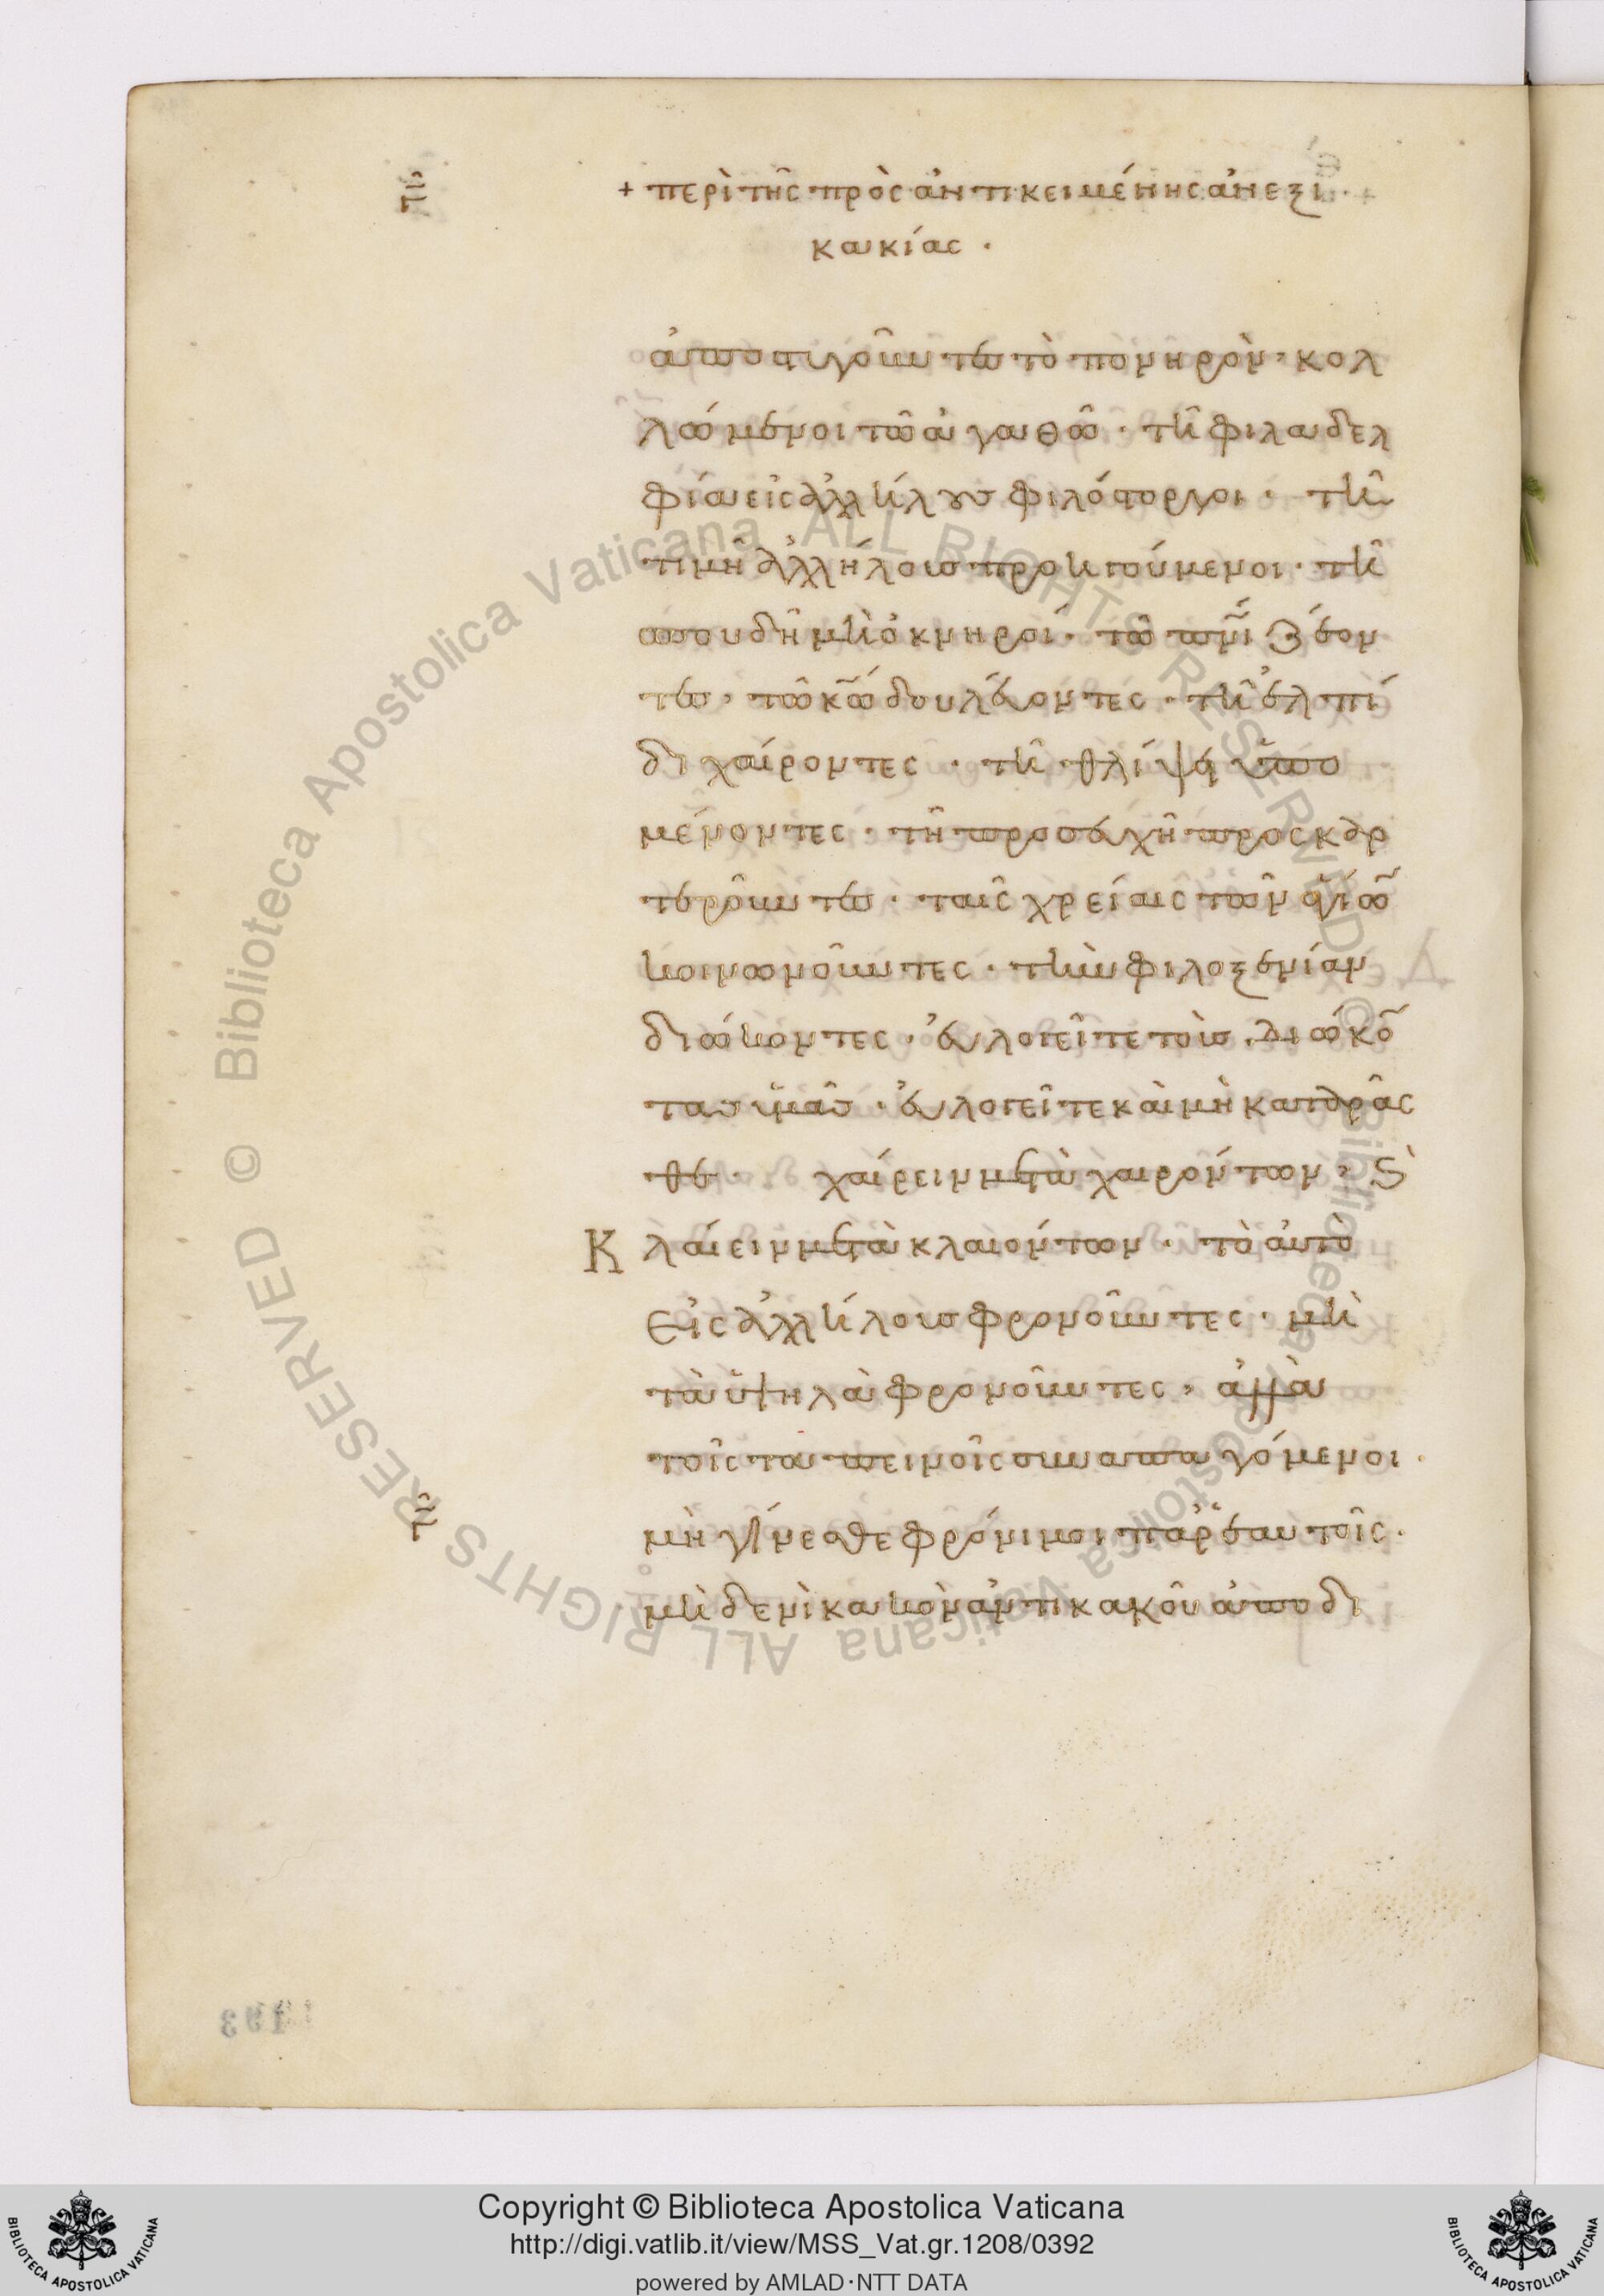 + περὶ τῆς πρὸς ἀντικειμένης ἀνεξι
κακίας ·
ἀποστυγοῦντες τὸ πονηρὸν, κολ
λώμενοι τῶ ἀγαθῶ · τῆ φιλαδελ
φία εἰς ἀλλήλους φιλόστοργοι · τῆ
τιμῆ ἀλλήλους προηγούμενοι · τῆ
σπουδῆ μὴ ὀκνηροί · τῶ πνι ζέον
τες, τῶ κω δουλεύοντες · τῆ ἐλπί
δι χαίροντες · τῆ θλίψει ὑπο
μένοντες · τῆ προσευχῆ προσκαρ
τεροῦντες · ταῖς χρείαις τῶν ἁγίω
κοινωνοῦντες · τὴν φιλοξενίαν
διώκοντες · εὐλογεῖτε τοὺς διώκο
τας ὑμᾶς · εὐλογεῖτε καὶ μὴ καταρᾶσ
θε · χαίρειν μετὰ χαιρόντων, ϗ
Κλαίειν μετὰ κλαιόντων · τὸ αὐτὸ
εἰς ἀλλήλους φρονοῦντες · μὴ
τὰ ὑψηλὰ φρονοῦντες, ἀλλὰ
τοῖς ταπεινοῖς συναπαγόμενοι ·
μὴ γίνεσθε φρόνιμοι παρ' ἑαυτοῖς ·
μηδενὶ κακὸν ἀντὶ κακοῦ ἀποδι
Copyright © Biblioteca Apostolica Vaticana
http://digi.vatlib.it/view/MSS_Vat.gr.1208/0392
powered by AMLAD·NTT DATA
© Biblioteca Apostolica Vaticana ALL RIGHTS RESERVED
© Biblioteca Apostolica Vaticana ALL RIGHTS RESERVED
BIBLIOTECA APOSTOLICA VATICANA
BIBLIOTECA APOSTOLICA VATICANA